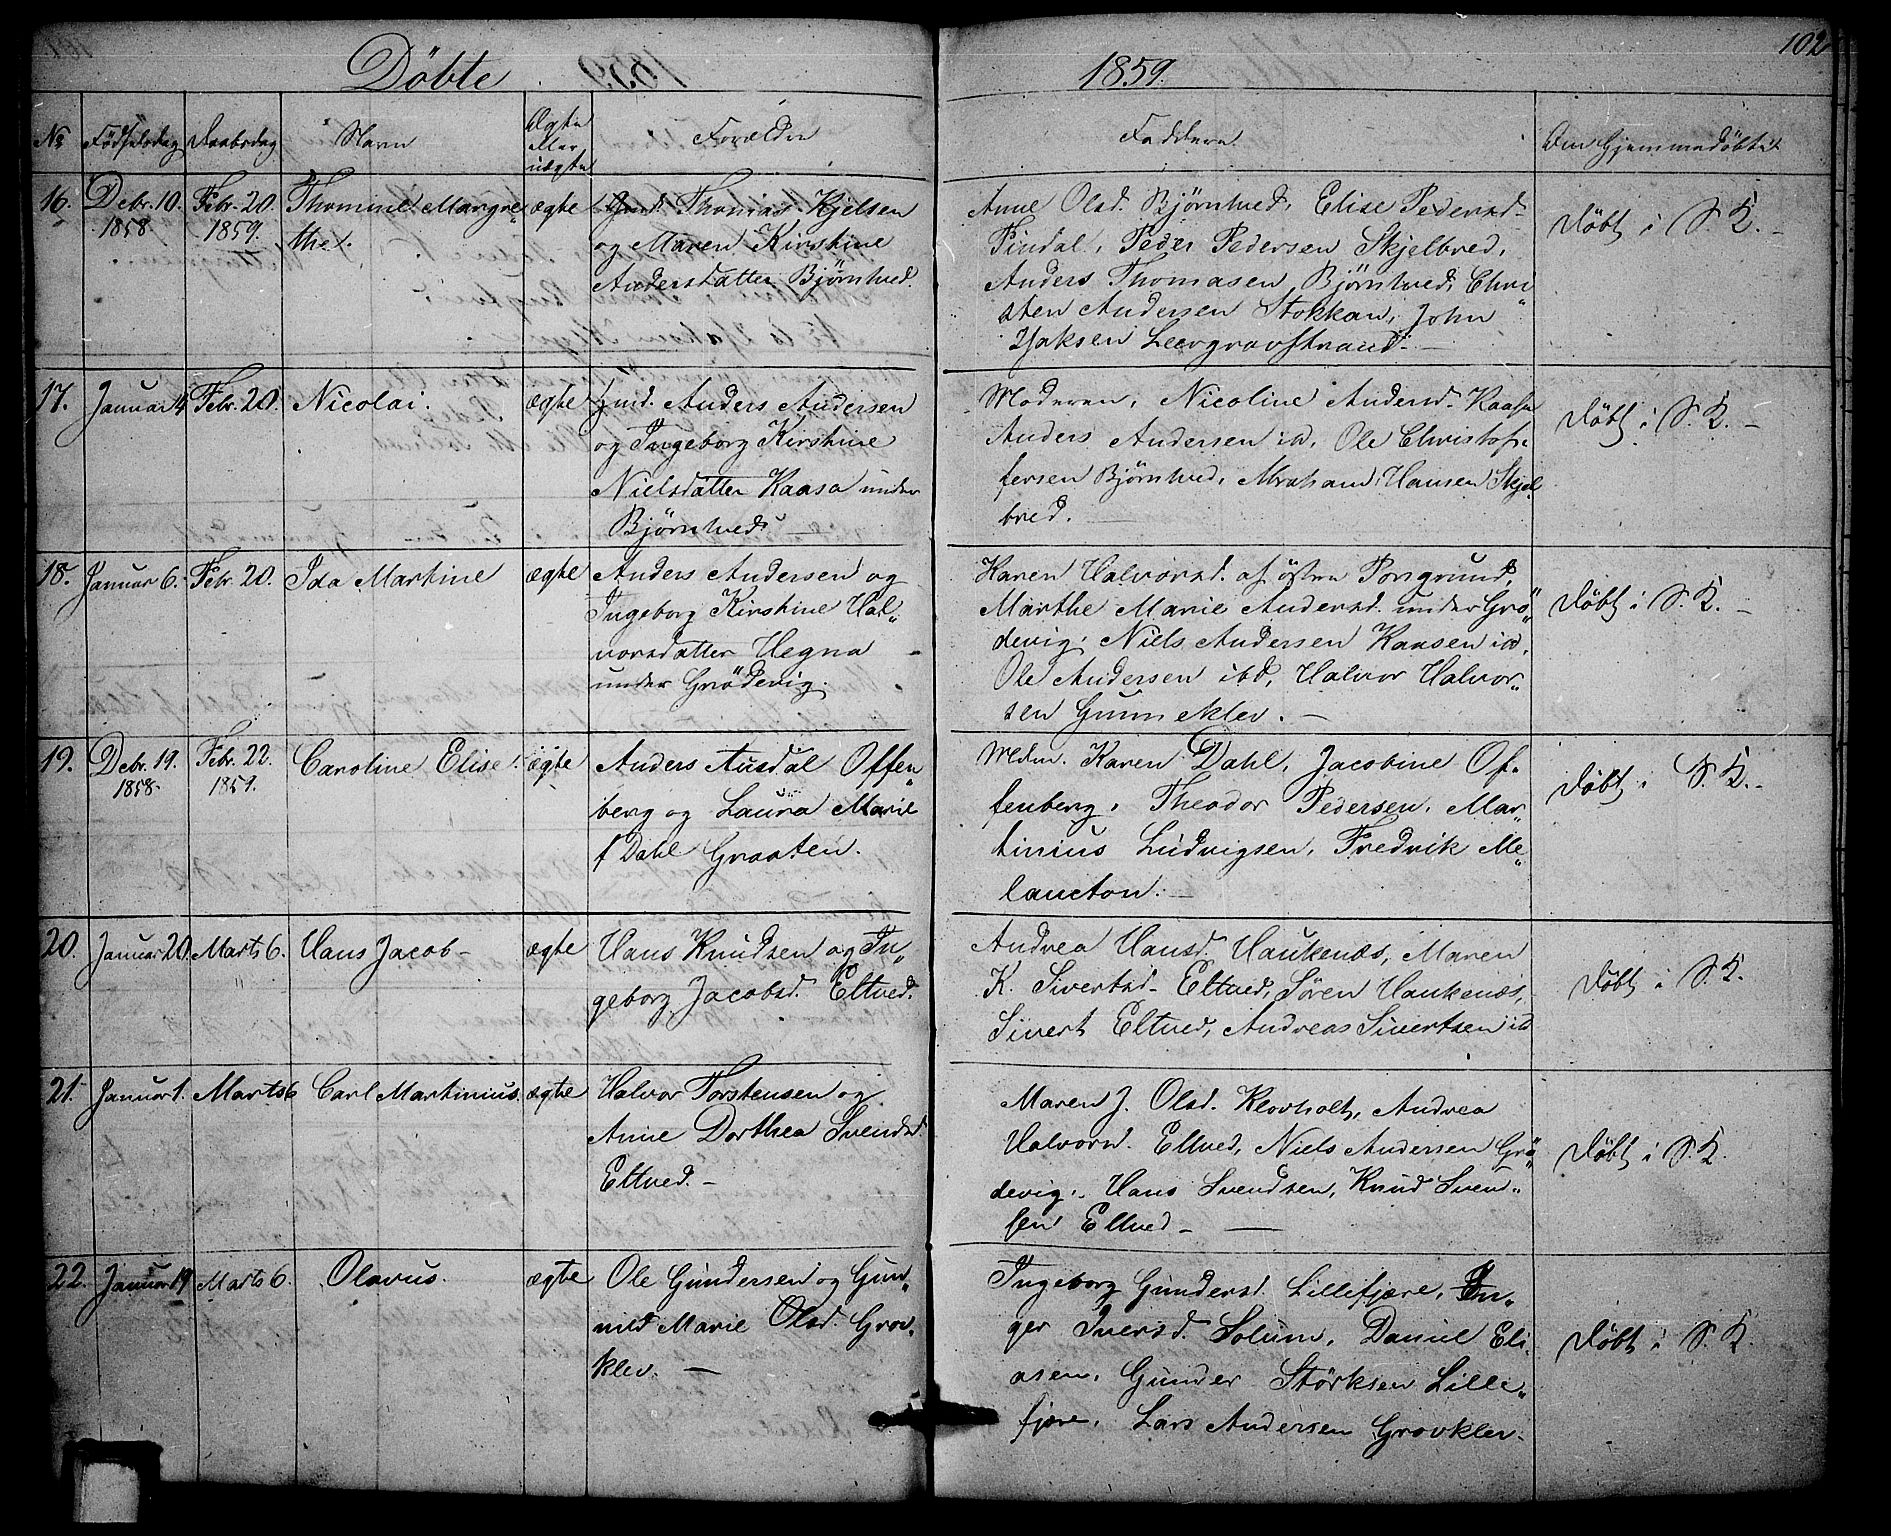 Döbte
1859.
102
No Födselsdag Daabsdag Navn Ægte eller uægte Forældre Faddere Om Hjemmedöbt
16. Debr. 10. 1858 Febr. 20. 1859. Thomine Margre„
the. ægte
Thomas Kjelsen
og Maren Kirstine
Andersdatter Björntved.
Anne Olsd. Björntved, Elise Pedersd.
Pindal, Peder Pedersen Skjelbred,
Anders Thomasen Björntved, Chri„
sten Andersen Stokkan, John
Isaksen Leergravstrand. —
Döbt i S. K. —
17. Januar 4 Febr. 20. Nicolai. ægte
Gmd. Anders Andersen
og Ingeborg Kirstine
Nielsdatter Kaasa under
Björntved —
Moderen, Nicoline Andersd. Kaasa
Anders Andersen id, Ole Christof„
fersen Björntved, Abraham Hansen Skjel
bred.
Döbt i S. K. —
18. Januar 6. Febr. 20. Ida Martine ægte
Anders Andersen og
Ingeborg Kirstine Hal„
vorsdatter Hegna
under Grödevig.
Karen Halvorsd. af östre Porsgrund,
Marthe Marie Andersd. under Grö„
devig, Niels Andersen Kaasen id,
Ole Andersen ibd, Halvor Halvor„
sen Gunneklev. —
Döbt i S. K. —
19. Debr. 19. 1858. Febr. 22. 1859. Caroline Elise. ægte
Anders Ausdal Offen„
berg og Laura Marie
f Dahl Graaten.
Mdm. Karen Dahl, Jacobine Of„
fenberg, Theodor Pedersen, Mar„
tinius Ludvigsen, Fredrik Me„
lancton. —
Döbt i S. K. —
20. Januar 20. Marts 6. Hans Jacob — ægte
Hans Knudsen og In„
geborg Jacobsd. Eltved.
Andrea Hansd. Haukenæs, Maren
K. Sivertsd. Eltved, Sören Haukenæs,
Sivert Eltved, Andreas Sivertsen id
Döbt i S. K.
21. Januar 1. Marts 6 Carl Martinius. ægte
Halvor Torstensen og
Anne Dorthea Svendsd.
Eltved. —
Maren J. Olsd. Klovholt, Andrea
Halvorsd. Eltved, Niels Andersen Grö„
devig, Hans Svendsen, Knud Sven„
sen Eltved — —
Döbt i S. K.
22. Januar 19 Marts 6. Olavus. ægte
Ole Gundersen og Gun„
nild Marie Olsd. Grov„
klev. —
Ingeborg Gundersd. Lillefjære, In„
ger Iversd. Solum, Daniel Eli„
asen, Gunder Störksen Lille„
fjære, Lars Andersen Grovklev.
Döbt i S. K.